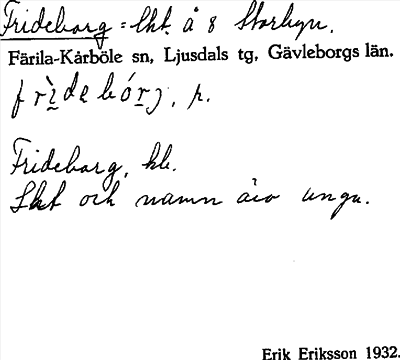 Frideborg = Lht. å 8 Storbyn.
Färila-Kårböle sn, Ljusdals tg, Gävleborgs län.
frìdebórj, n.
Frideborg, hb.
Lht och namn äro unga.
Erik Eriksson 1932.